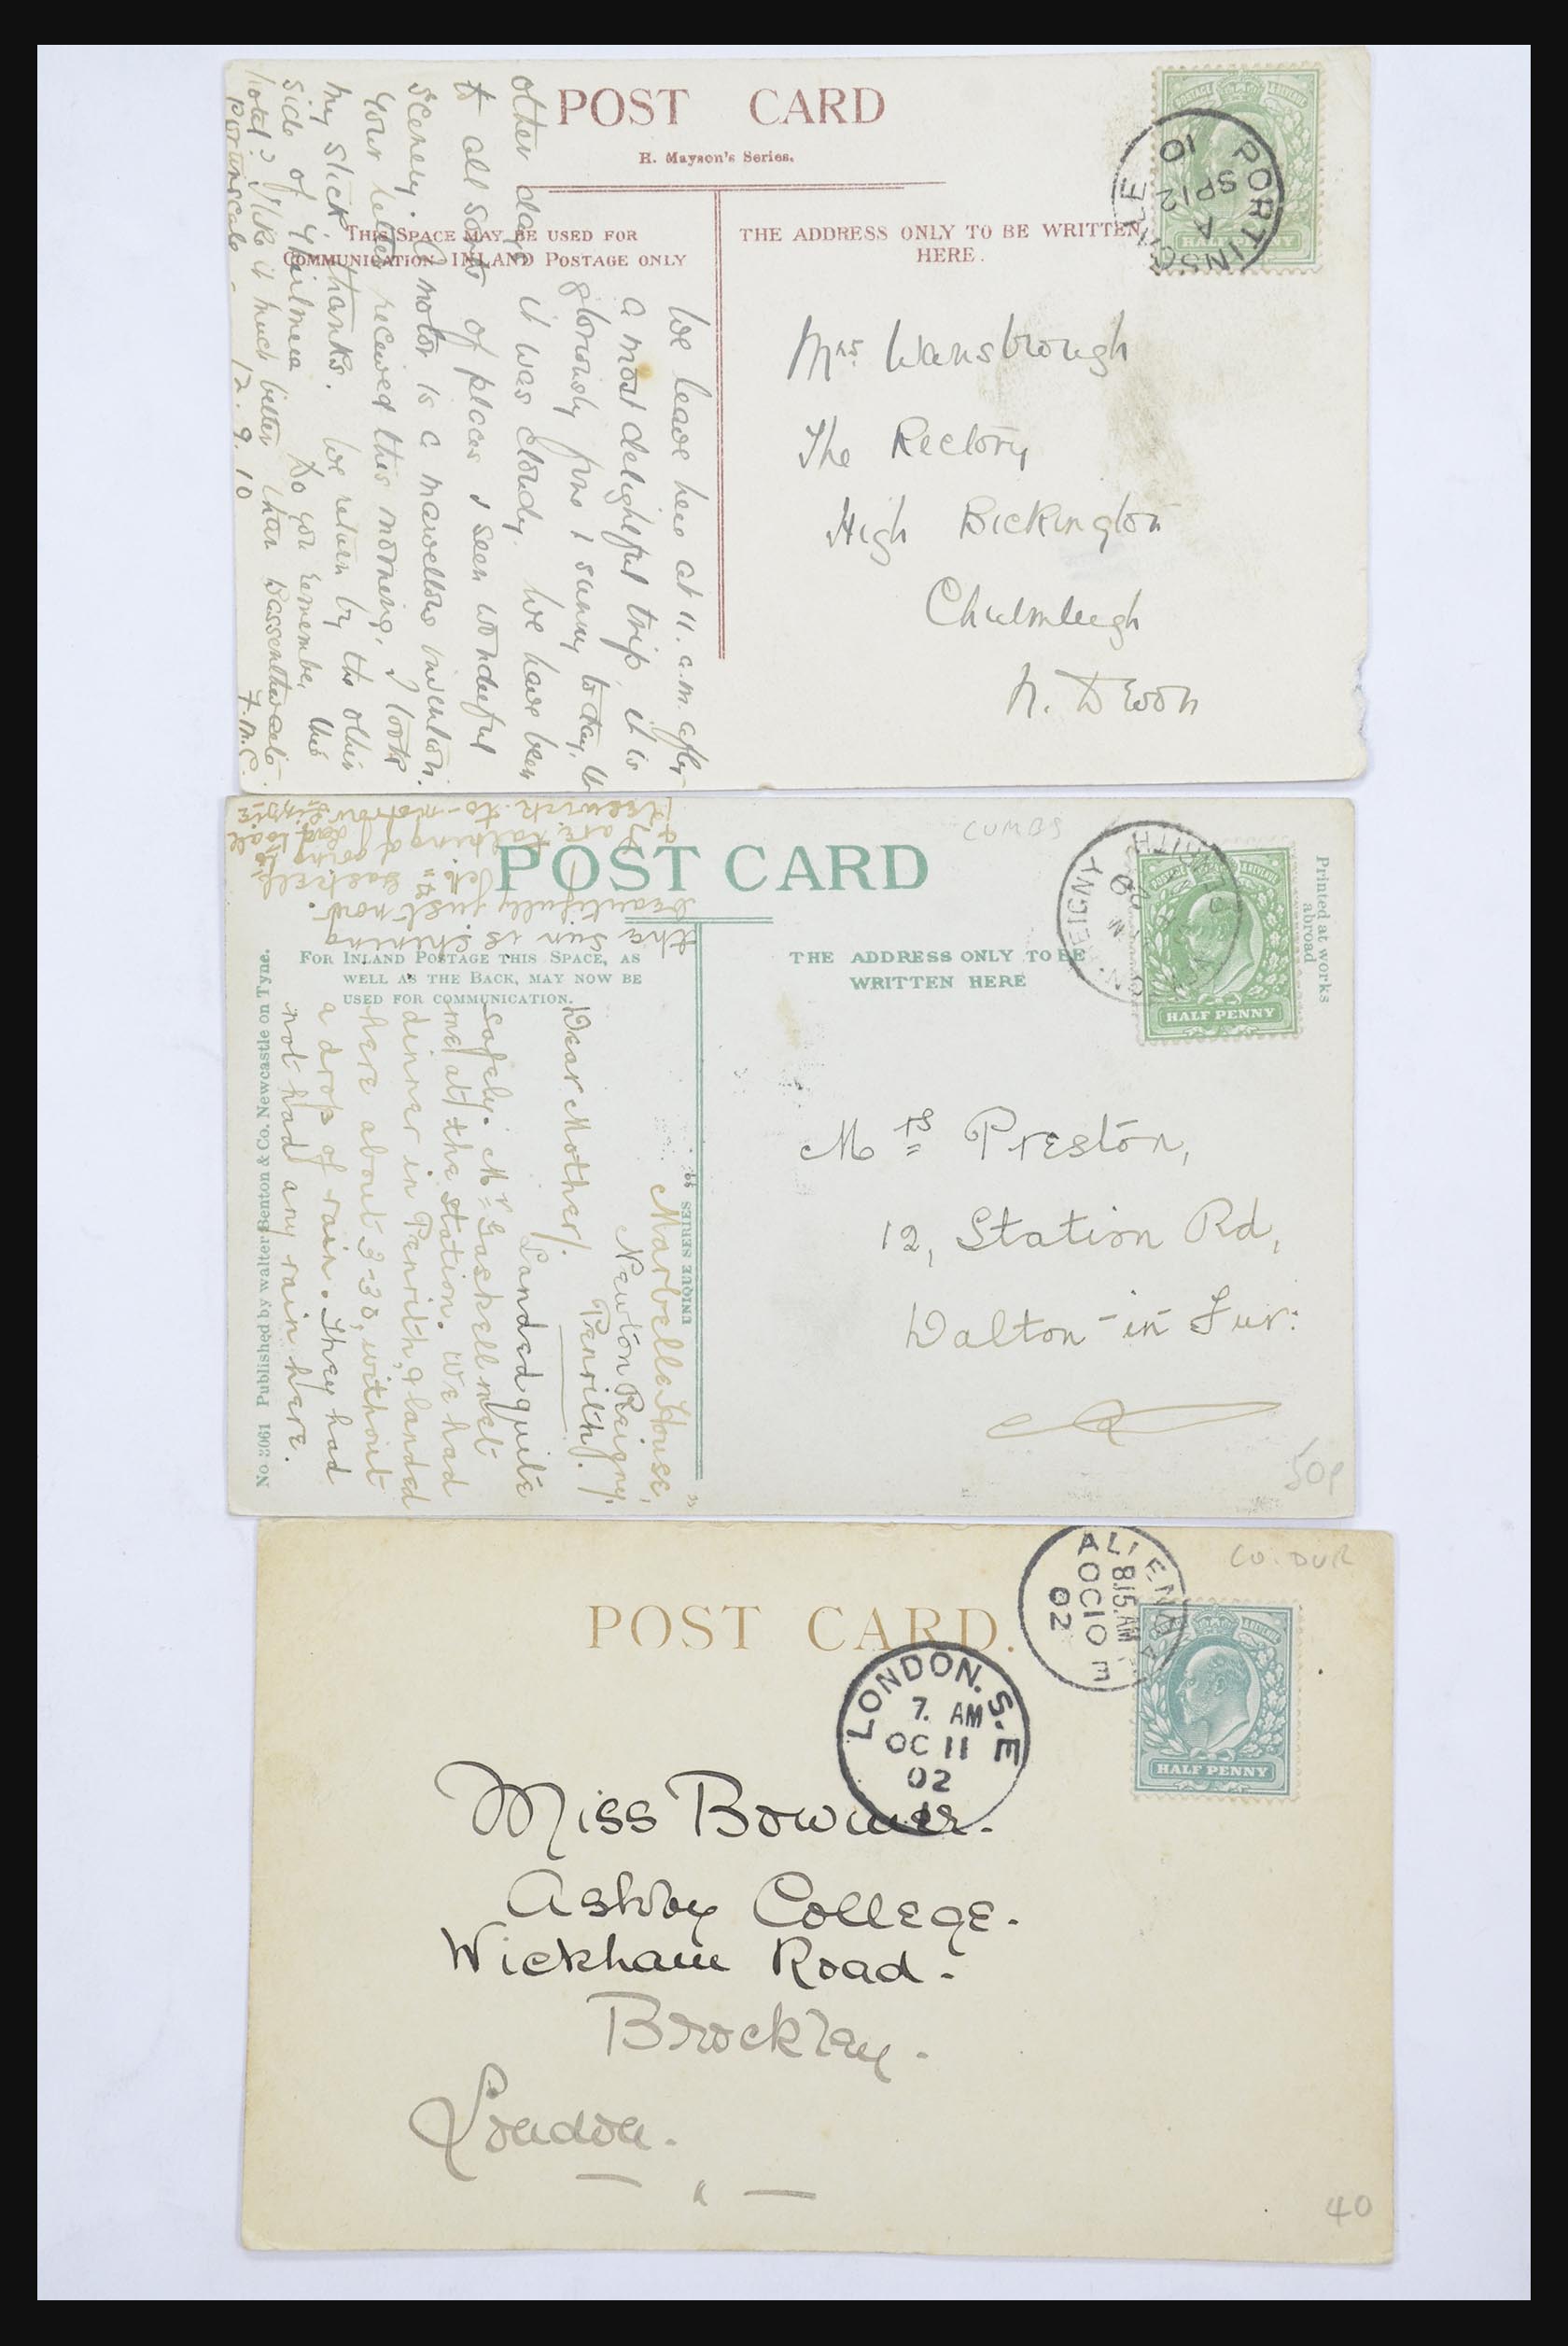 POST CARD
H. Mayson's Series.
THIS SPACE MAY BE USED FOR
COMMUNICATION INLAND POSTAGE ONLY
THE ADDRESS ONLY TO BE WRITTEN
HERE.
HALF PENNY
PORTINSCALE
A
SP 12
10
We leave here at 11. a.m. after
a most delightful trip it is
gloriously fine & sunny today, the
other days it was cloudy. We have been
to all sorts of places & seen wonderful
scenery. A motor is a marvellous invention.
Your letter received this morning, & looks
my stick thanks. We return by the other
side of Thirlmere Do you remember this
hotel? I like it much better than Bassenthwaite
Portinscale - 12.9.10 F.M.C.
Mrs. Wansbrough
The Rectory
High Bickington
Chulmleigh
N. Devon
CUMBS
POST CARD
FOR INLAND POSTAGE THIS SPACE, AS
WELL AS THE BACK, MAY NOW BE
USED FOR COMMUNICATION.
THE ADDRESS ONLY TO BE
WRITTEN HERE
Printed at works
abroad
HALF PENNY
No. 3061 Published by Walter Benton & Co. Newcastle on Tyne.
"UNIQUE SERIES"
Marbella House,
Newton Reigny,
Penrith.
Dear Mother/.
Landed quite
safely. Mr Gaskell met
me at the station. We had
dinner in Penrith, & landed
here about 3-30, without
a drop of rain. They had
not had any rain here.
the sun is shining
beautifully just now.
Gaskell
are talking of going to
Keswick to-morrow
Mrs Preston,
12, Station Rd,
Dalton-in-Fur:
50p
CO. DUR
POST CARD.
8.15.AM
OC 10
02
LONDON. S.E
7. AM
OC 11
02
HALF PENNY
Miss Bowmer.
Ashby College.
Wickham Road.
Brockley.
London.
40